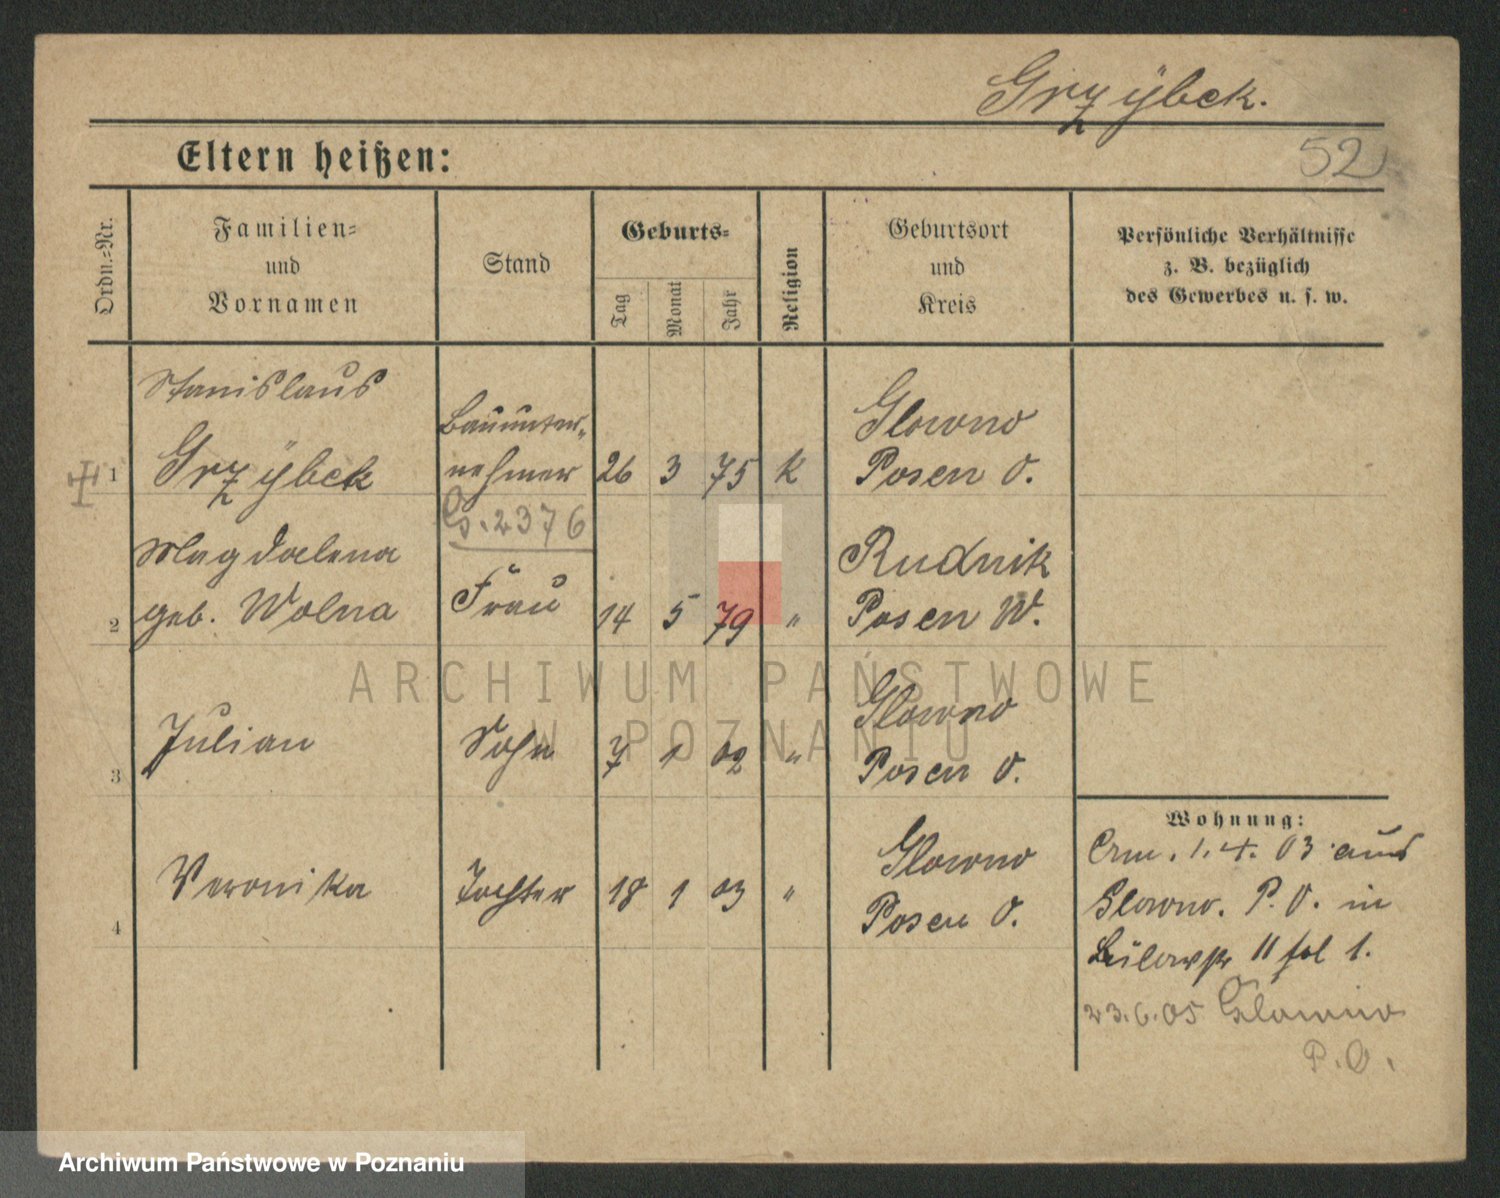 Grzÿbek.
52
Eltern heißen:
Ordn.=Nr.
Familien=
und
Vornamen
Stand
Geburts=
Tag
Monat
Jahr
Religion
Geburtsort
und
Kreis
Persönliche Verhältnisse
z. B. bezüglich
des Gewerbes u. s. w.
Stanislaus
1 Grzÿbek
Bauunter-
nehmer
26 3 75 K
Glowno
Posen O.
G.2376
Magdalena
2 geb. Wolna
Frau
14 5 79 "
Rudnik
Posen W.
3 Julian
Sohn
7 1 02 "
Glowno
Posen O.
4 Veronika
Tochter
18 1 03 "
Glowno
Posen O.
Wohnung:
1.4.03 aus
Glowno. P.O. in
Bülowstr 11 1.
23.6.05 Glowno
P.O.
ARCHIWUM PAŃSTWOWE
W POZNANIU
Archiwum Państwowe w Poznaniu